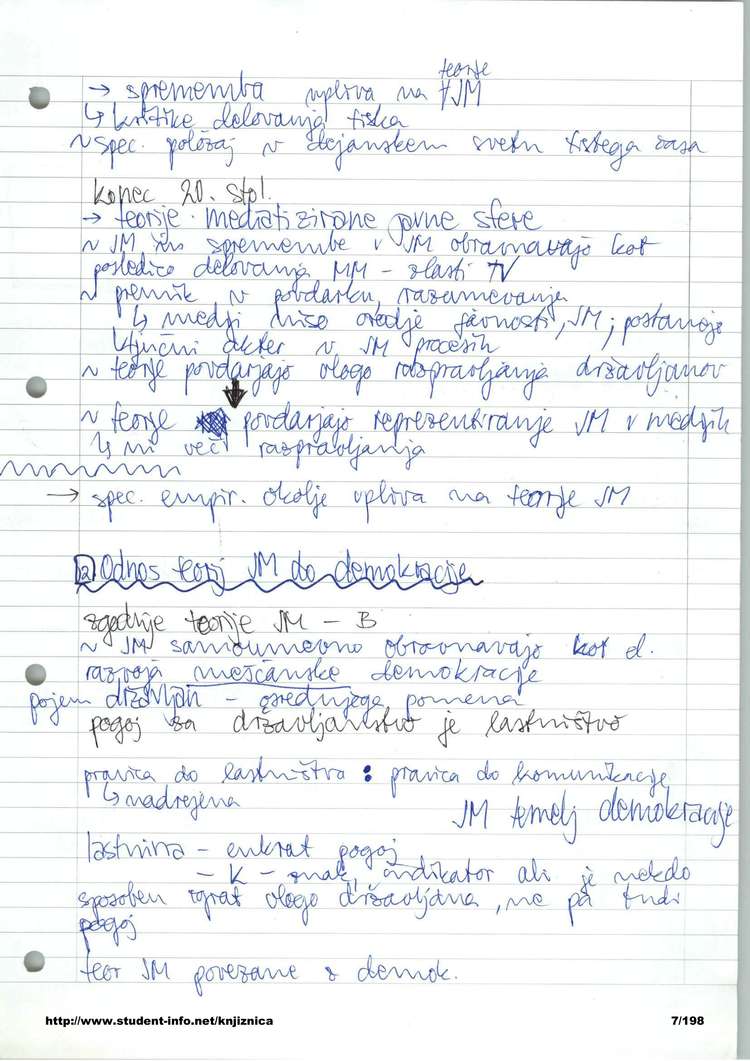 → sprememba vpliva na teorije JM
↳ kritike delovanja tiska
~ spec. položaj v dejanskem svetu tistega časa
konec 20. stol.
→ teorije mediatizirane javne sfere
~ JM in spremembe v JM obravnavajo kot
posledico delovanja MM - zlasti TV
~ premik v povdarku, razumevanja
↳ mediji niso orodje javnosti, JM; postanejo
ključni akter v JM procesih
~ teorije povdarjajo vlogo razpravljanja državljanov
~ teorije povdarjajo reprezentiranje JM v medijih
↳ ni več razpravljanja
→ spec. empir. okolje vpliva na teorije JM
2 Odnos teorij JM do demokracije
zgodnje teorije JM - B
~ JM samoumevno obravnavajo kot el.
razvoja meščanske demokracije
pojem državljan - osrednjega pomena
pogoj za državljanstvo je lastništvo
pravica do lastništva : pravica do komunikacije
↳ nadrejena
JM temelj demokracije
lastnina - enkrat pogoj
- K - znak, indikator ali je nekdo
sposoben igrat vlogo državljana, ne pa tudi
pogoj
teor JM povezane z demok.
http://www.student-info.net/knjiznica
7/198